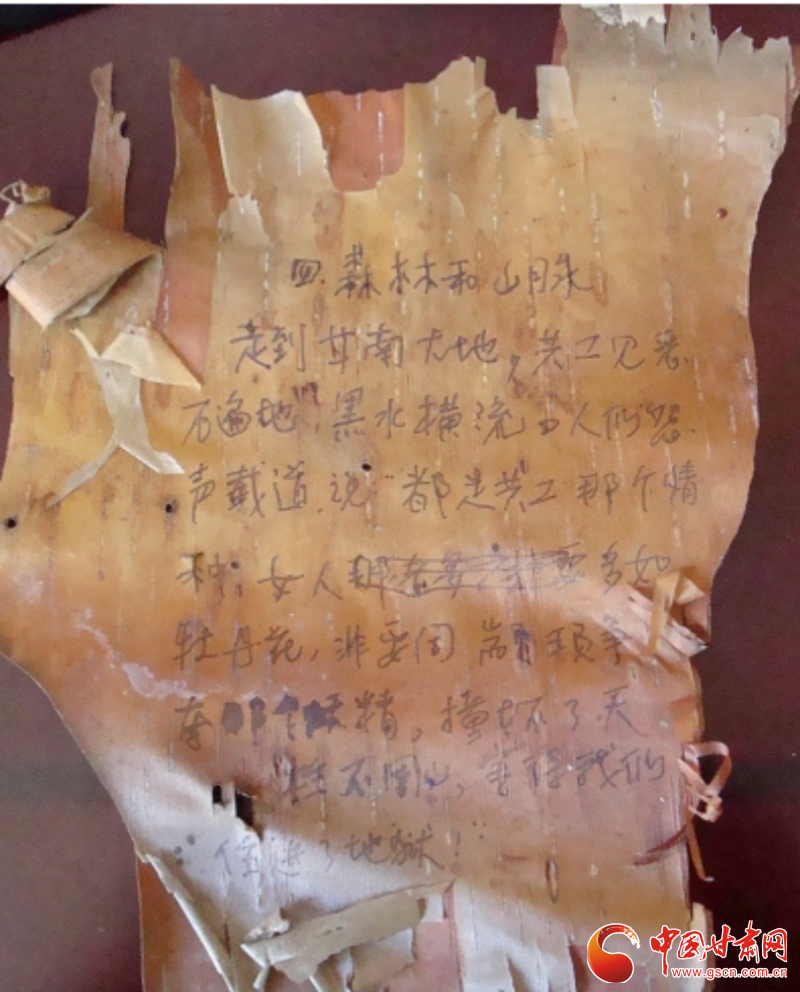 四.森林和山脉
走到甘南大地,共工见恶
石遍地,黑水横流。人们怨
声载道.说"都是共工那个情
种,女人多如
牡丹花,非要同颛顼争
夺那个妖精,撞坏了天
柱不周山,害得我们
住进了地狱!"
中国甘肃网
www.gscn.com.cn